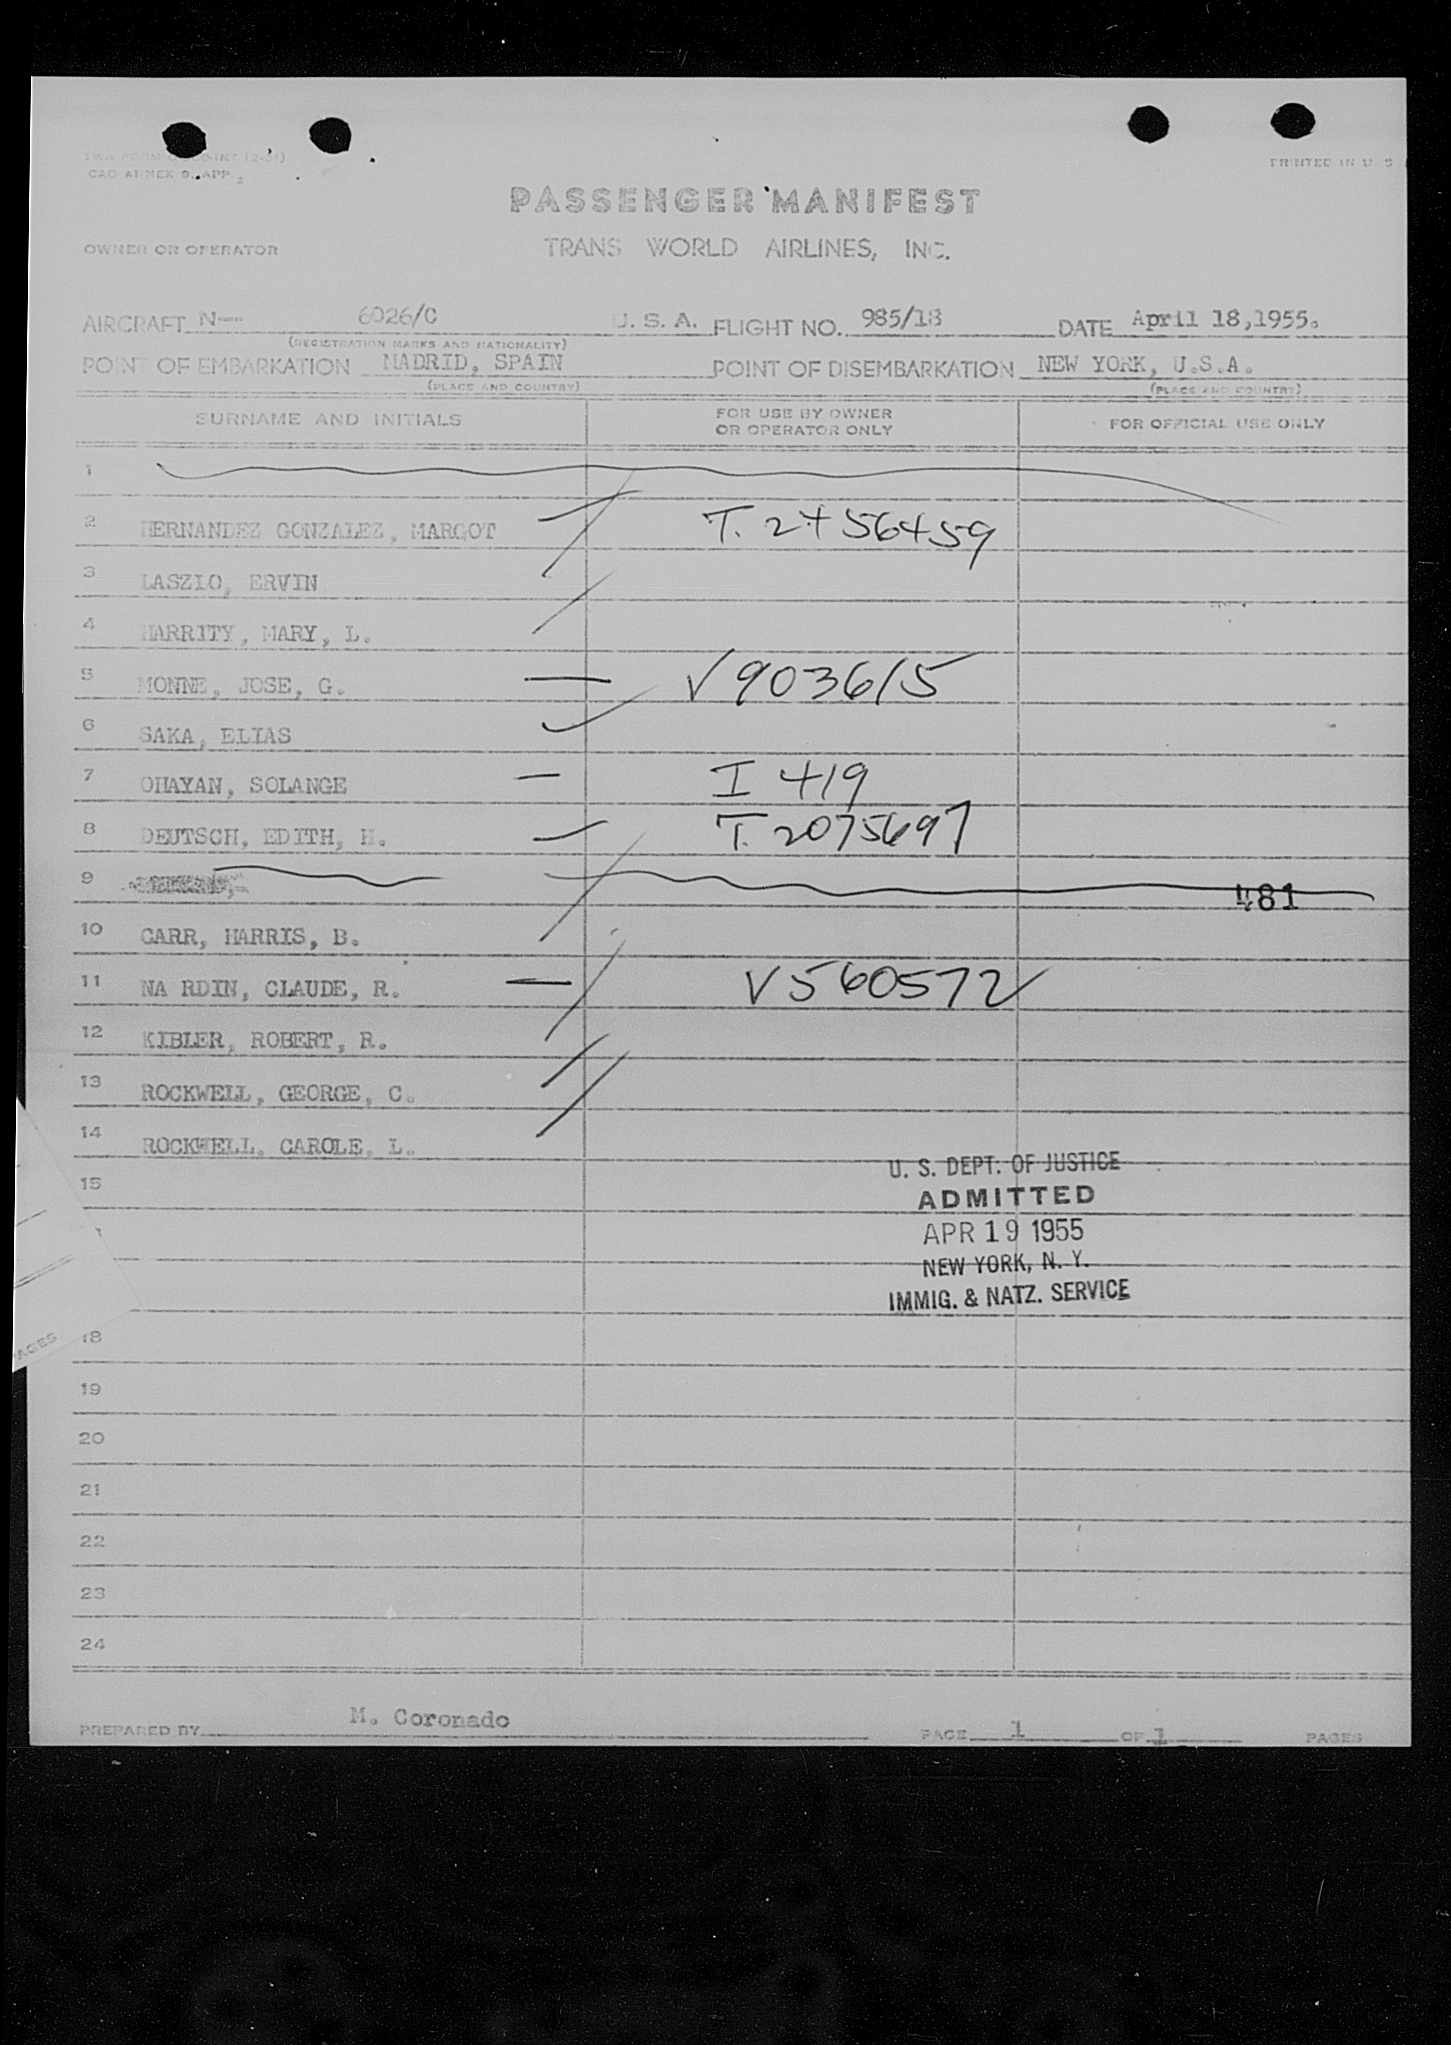 PRINTED IN U. S
PASSENGER MANIFEST
OWNER OR OPERATOR TRANS WORLD AIRLINES, INC.
AIRCRAFT N-- 6026/C U. S. A. FLIGHT NO. 985/18 DATE April 18,1955.
(REGISTRATION MARKS AND NATIONALITY)
POINT OF EMBARKATION MADRID, SPAIN POINT OF DISEMBARKATION NEW YORK, U.S.A.
(PLACE AND COUNTRY) (PLACE AND COUNTRY)
SURNAME AND INITIALS FOR USE BY OWNER OR OPERATOR ONLY FOR OFFICIAL USE ONLY
1
2 HERNANDEZ GONZALEZ, MARGOT T. 2456459
3 LASZLO, ERVIN
4 HARRITY, MARY, L.
5 MONNE, JOSE, G. V903615
6 SAKA, ELIAS
7 OHAYAN, SOLANGE I 419
8 DEUTSCH, EDITH, H. T. 2075697
9 481
10 CARR, HARRIS, B.
11 NA RDIN, CLAUDE, R. V560572
12 KIBLER, ROBERT, R.
13 ROCKWELL, GEORGE, C.
14 ROCKWELL, CAROLE, L.
U. S. DEPT. OF JUSTICE
15
ADMITTED
APR 19 1955
NEW YORK, N. Y.
IMMIG. & NATZ. SERVICE
AGES 18
19
20
21
22
23
24
PREPARED BY M. Coronado PAGE 1 OF 1 PAGES